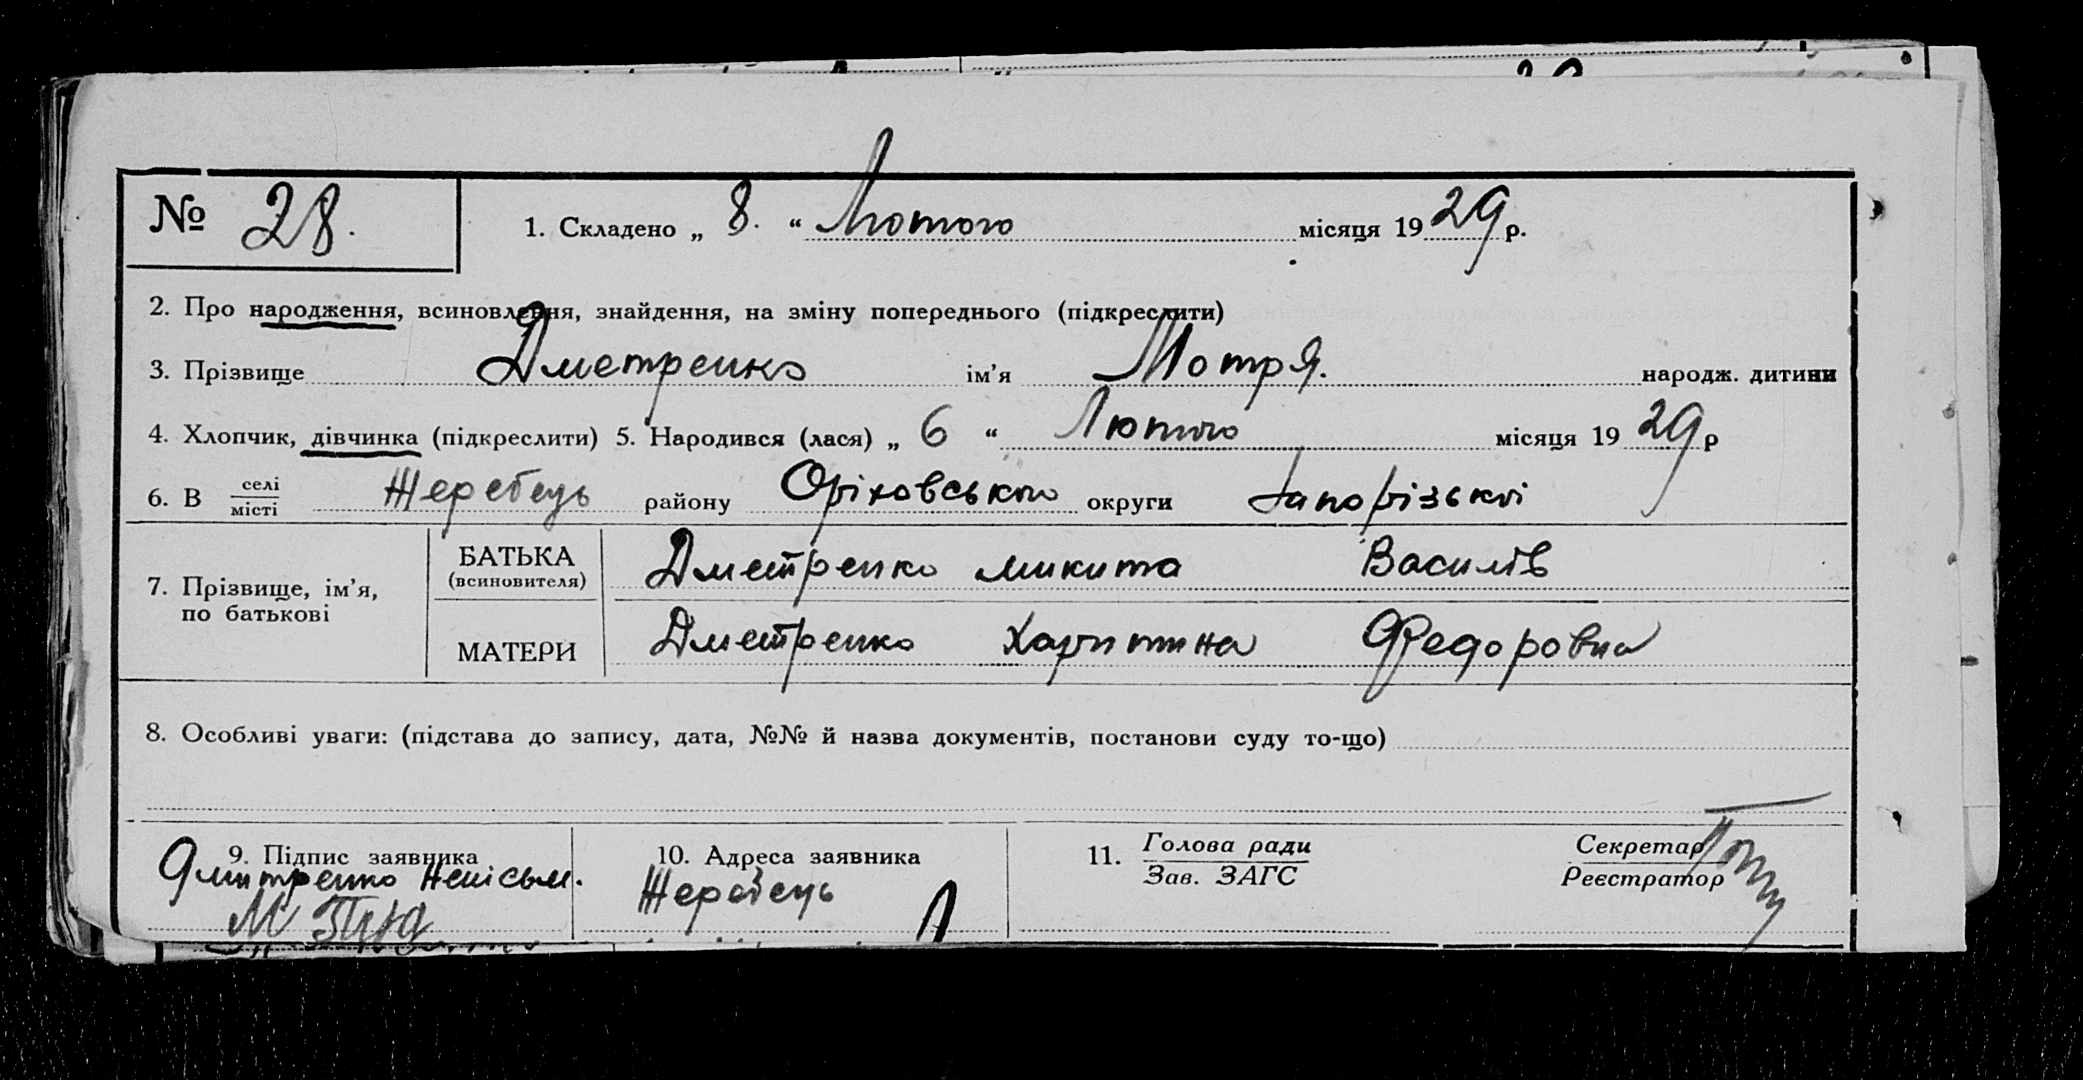 № 28. 1. Складено „ 8. “ Лютого місяця 1929 р.
2. Про народження, всиновлення, знайдення, на зміну попереднього (підкреслити)
3. Прізвище Дметренко ім’я Мотря. народж. дитини
4. Хлопчик, дівчинка (підкреслити) 5. Народився (лася) „ 6 “ Лютого місяця 1929 р
6. В селі місті Жеребець району Оріховського округи Запорізької
7. Прізвище, ім’я, по батькові
БАТЬКА (всиновителя) Дметренко микита Василів
МАТЕРИ Дметренко Харитина Федоровна
8. Особливі уваги: (підстава до запису, дата, №№ й назва документів, постанови суду то-що)
9. Підпис заявника
Дмитренко Неписьм.
10. Адреса заявника
Жеребець
11. Голова ради
Зав. ЗАГС
Секретар
Реєстратор